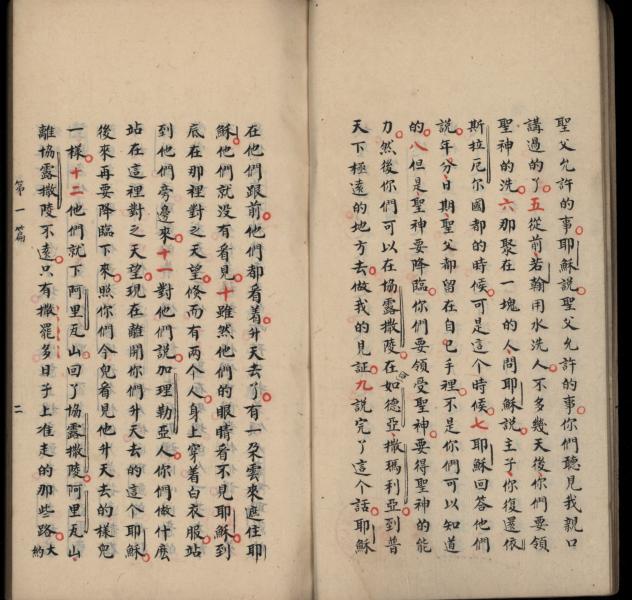 聖父允許的事。耶穌說聖父允許的事。你們聽見我親口
講過的了。五從前若翰用水洗人。不多幾天後你們要領
聖神的洗。六那聚在一塊的人問耶穌說主子你復還依
斯拉厄尔國都的時候可是這個時候。七耶穌回答他們
說年分日期聖父都留在自己手裡不是你們可以知道
的。八但是聖神要降臨你們要領受聖神要得聖神的能
力。然後你們可以在協露撒陵在如德亞撒瑪利亞到普
天下極遠的地方去做我的見証。九說完了這個話耶穌
在他們跟前。他們都看着升天去了。有一朶雲來遮住耶
穌他們就没有看見。十雖然他們的眼睛看不見耶穌到
底在那裡對之天望。倏而有两個人身上穿着白衣服站
到他們旁邊來。十一對他們說加理勒亞人你們做什麽
站在這裡對之天望。現在離開你們升天去的這個耶穌
後來再要降臨下來。照你們今兒看見他升天去的樣兒
一樣。十二他們就下阿里瓦山回了協露撒陵。阿里瓦山
離協露撒陵不遠。只有撒罷多日子上准走的那些路。大約
第一篇
二